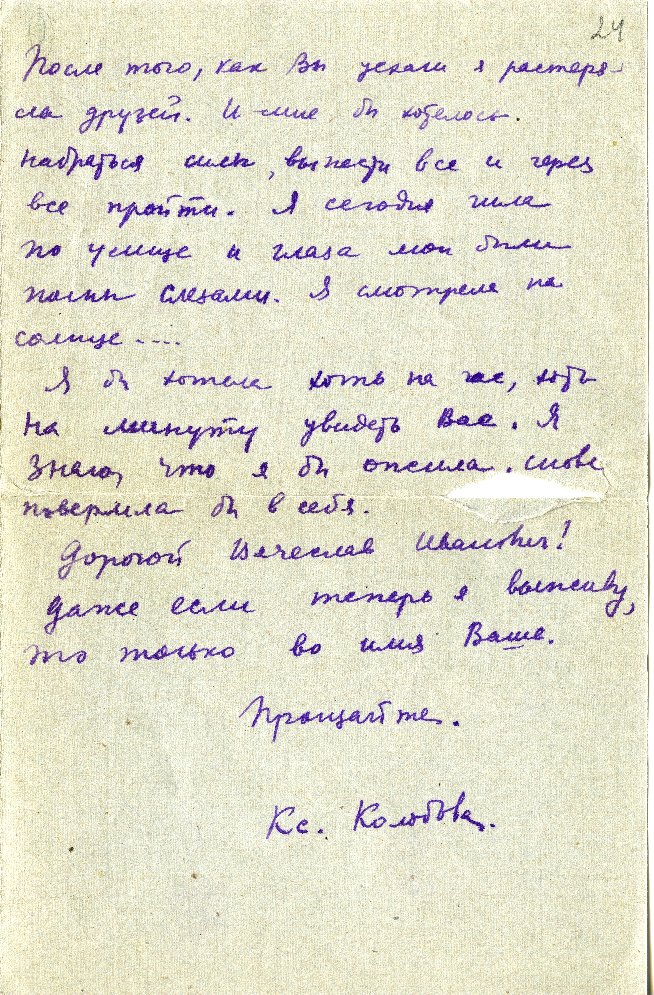 24
После того, как Вы уехали я растеря-
ла друзей. И мне бы хотелось
набраться силы, вынести все и через
все пройти. Я сегодня шла
по улице и глаза мои были
полны слезами. Я смотрела на
солнце....
Я бы хотела хоть на час, хоть
на минуту увидеть Вас. Я
знаю, что я бы ожила. снова
поверила бы в себя.
Дорогой Вячеслав Иванович!
Даже если теперь я выживу,
то только во имя Ваше.
Прощайте.
Кс. Колобова.